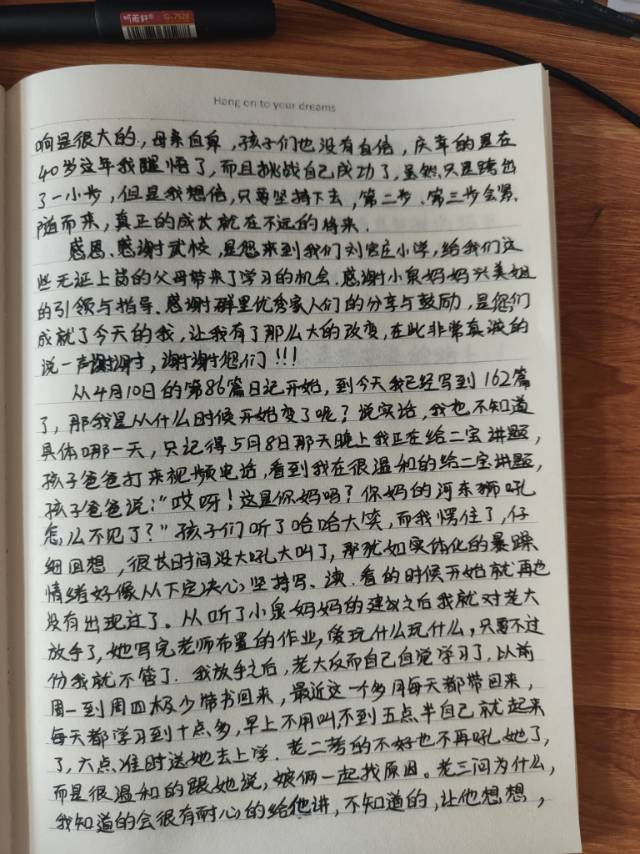 G-7928
Hang on to your dreams
响是很大的，母亲自卑，孩子们也没有自信，庆幸的是在
40岁这年我醒悟了，而且挑战自己成功了，虽然只是跨出
了一小步，但是我想信，只要坚持下去，第二步、第三步会紧
随而来，真正的成长就在不远的将来．
感恩、感谢武校，是您来到我们刘官庄小学，给我们这
些无证上岗的父母带来了学习的机会．感谢小泉妈妈兴美姐
的引领与指导、感谢群里优秀家人们的分享与鼓励，是您们
成就了今天的我，让我有了那么大的改变，在此非常真诚的
说一声谢谢，谢谢您们！！！
从4月10日的第86篇日记开始，到今天我已经写到162篇
了，那我是从什么时候开始变了呢？说实话，我也不知道
具体哪一天，只记得5月8日那天晚上我正在给二宝讲题，
孩子爸爸打来视频电话，看到我在很温和的给二宝讲题，
孩子爸爸说：“哎呀！这是你妈吗？你妈的河东狮吼
怎么不见了？”孩子们听了哈哈大笑，而我愣住了，仔
细回想，很长时间没大吼大叫了，那犹如实体化的暴躁
情绪好像从下定决心坚持写、读、看的时候开始就再也
没有出现过了。从听了小泉妈妈的建议之后我就对老大
放手了，她写完老师布置的作业，爱玩什么玩什么，只要不过
份我就不管了．我放手之后，老大反而自己自觉学习了，以前
周一到周四极少带书回来，最近这一个多月每天都带回来，
每天都学习到十点多，早上不用叫不到五点半自己就起来
了，六点准时送她去上学．老二考的不好也不再吼她了，
而是很温和的跟她说，娘俩一起找原因。老三问为什么，
我知道的会很有耐心的给他讲，不知道的，让他想想，